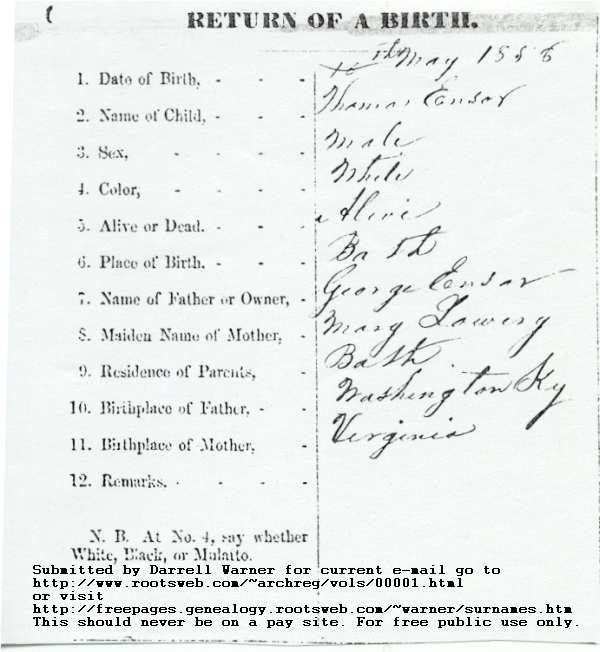 RETURN OF A BIRTH.
1. Date of Birth, - - - May 1858
2. Name of Child, - - - Thomas Ensor
3. Sex, - - - - Male
4. Color, - - - - White
5. Alive or Dead. - - - Alive
6. Place of Birth. - - - Bath
7. Name of Father or Owner, - George Ensor
8. Maiden Name of Mother, - Mary Lowery
9. Residence of Parents, - Bath.
10. Birthplace of Father, - - Washington Ky
11. Birthplace of Mother, - Virginia
12. Remarks. - - - -
N. B. At No. 4, say whether
White, Black, or Mulatto.
Submitted by Darrell Warner for current e-mail go to
http://www.rootsweb.com/~archreg/vols/00001.html
or visit
http://freepages.genealogy.rootsweb.com/~warner/surnames.htm
This should never be on a pay site. For free public use only.